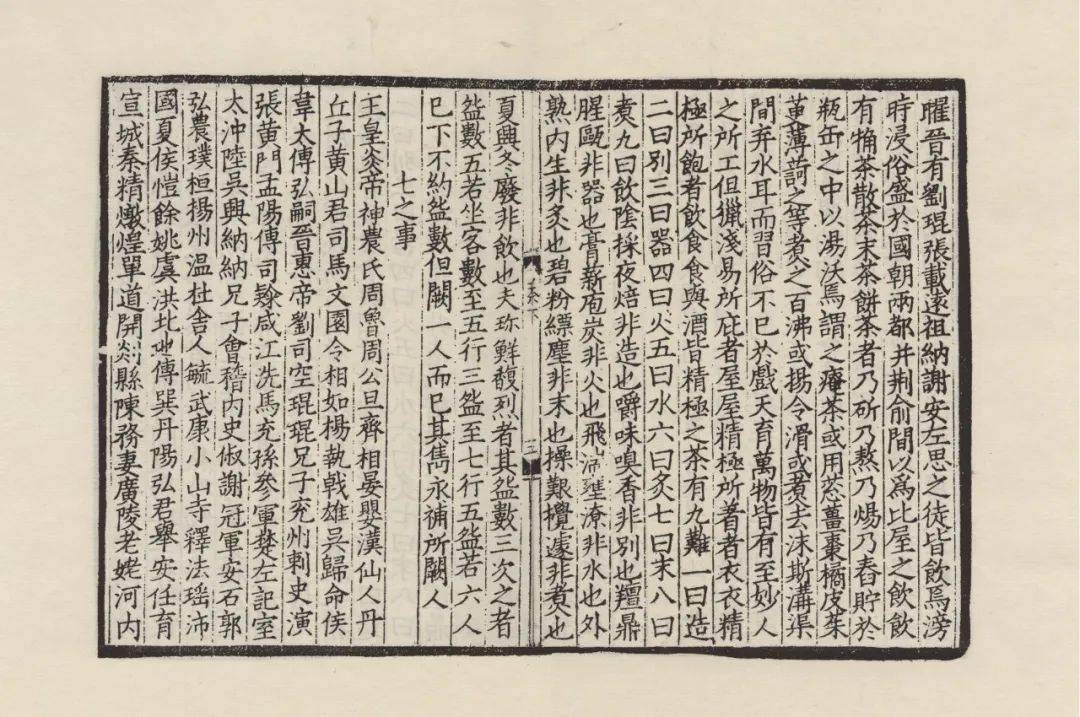 曜晉有劉琨張載遠祖納謝安左思之徒皆飲焉滂
時浸俗盛於國朝兩都并荆俞間以爲比屋之飲飲
有觕茶散茶末茶餅茶者乃斫乃熬乃煬乃舂貯於
瓶缶之中以湯沃焉謂之痷茶或用葱薑棗橘皮茱
萸薄訶之等煮之百沸或揚令滑或煮去沫斯溝渠
間弃水耳而習俗不已於戲天育萬物皆有至妙人
之所工但獵淺易所庇者屋屋精極所著者衣衣精
極所飽者飲食食與酒皆精極之茶有九難一曰造
二曰別三曰器四曰火五曰水六曰炙七曰末八曰
煮九曰飲陰採夜焙非造也嚼味嗅香非別也羶鼎
腥甌非器也膏薪庖炭非火也飛湍壅潦非水也外
熟内生非炙也碧粉縹塵非末也操艱攪遽非煮也
茶下
三
夏興冬廢非飲也夫珎鮮馥烈者其盌數三次之者
盌數五若坐客數至五行三盌至七行五盌若六人
已下不約盌數但闕一人而已其雋永補所闕人
七之事
王皇炎帝神農氏周魯周公旦齊相晏嬰漢仙人丹
丘子黄山君司馬文園令相如楊執戟雄吳歸命侯
韋太傅弘嗣晉惠帝劉司空琨琨兄子兖州刺史演
張黄門孟陽傅司隸咸江洗馬充孫參軍楚左記室
太沖陸吳興納納兄子會稽内史俶謝冠軍安石郭
弘農璞桓揚州温杜舍人毓武康小山寺釋法瑶沛
國夏侯愷餘姚虞洪北地傅巽丹陽弘君舉安任育
宣城秦精燉煌單道開剡縣陳務妻廣陵老姥河内